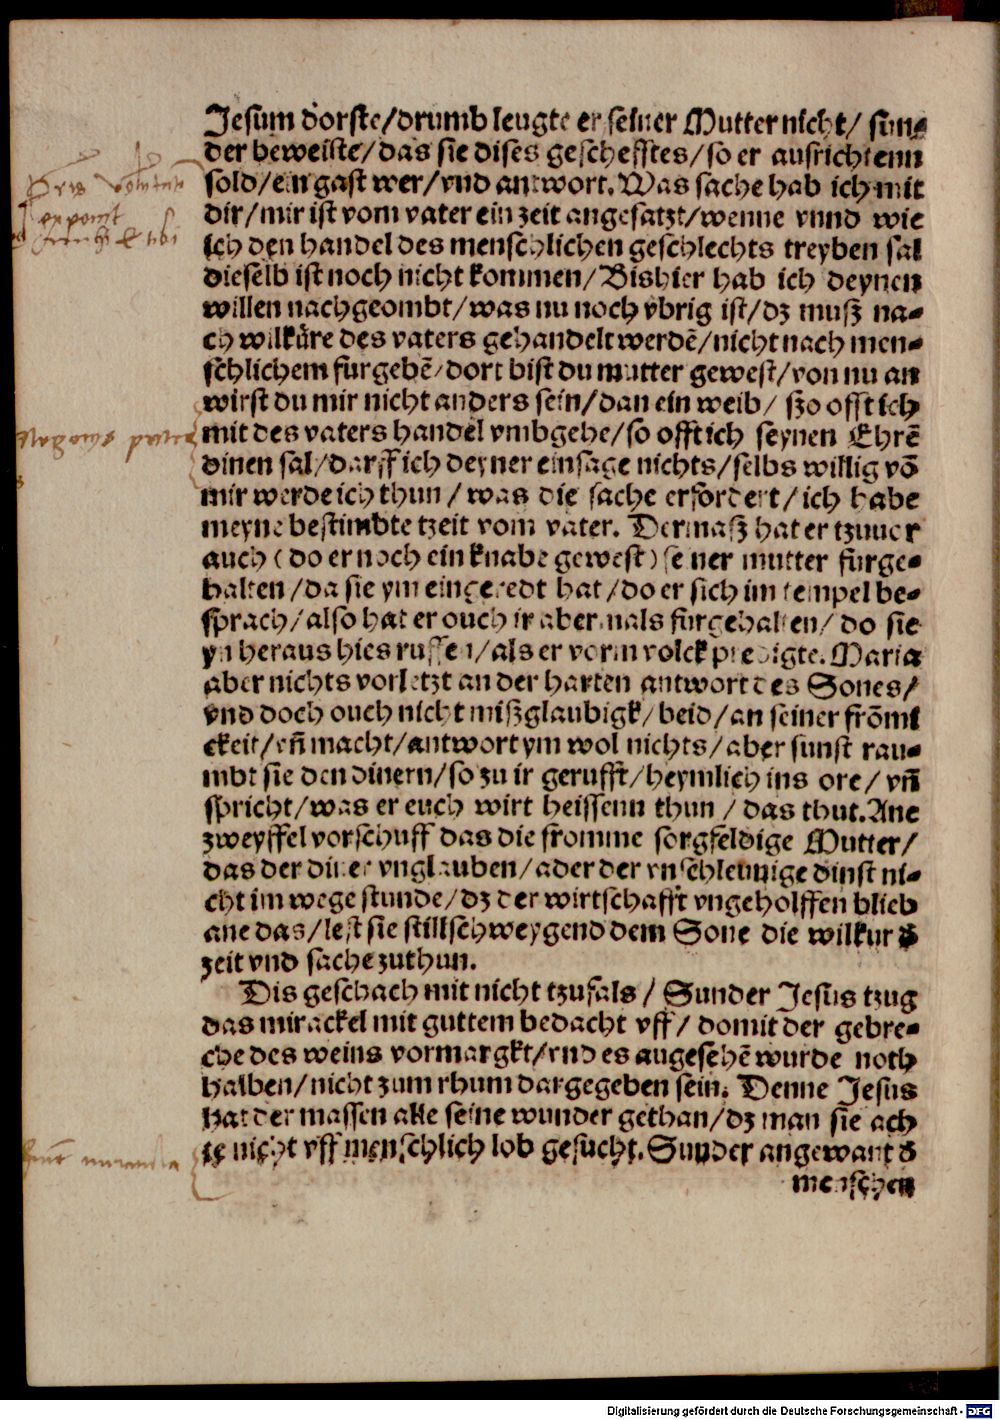 Jesum dorste/drumb leugte er seiner Mutter nicht/ sun-
der beweiste/das sie dises geschefftes/so er ausrichtenn
sold/ein gast wer/vnd antwort. Was sache hab ich mit
dir/mir ist vom vater ein zeit angesatzt/wenne vnnd wie
ich den handel des menschlichen geschlechts treyben sal
dieselb ist noch nicht kommen/Bishier hab ich deynen
willen nachgeombt/was nu noch vbrig ist/dz muß na-
ch wilkůre des vaters gehandelt werdē/nicht nach men-
schlichem furgebē/dort bist du mutter gewest/von nu an
wirst du mir nicht anders sein/dan ein weib/ ßo offt ich
mit des vaters handel vmbgehe/so offt ich seynen Ehrē
dinen sal/darff ich deyner einsage nichts/selbs willig vō
mir werde ich thun/was die sache erfordert/ich habe
meyne bestimbte tzeit vom vater. Dermaß hat er tzuuor
auch (do er noch ein knabe gewest) seiner mutter furge-
halten/da sie ym eingeredt hat/do er sich im tempel be-
sprach/also hat er ouch ir abermals furgehalten/ do sie
yn heraus hies ruffen/als er vorm volck predigte. Maria
aber nichts vorletzt an der harten antwort des Sones/
vnd doch ouch nicht mißglaubigk/beid/an seiner frōmi
ckeit/vñ macht/antwort ym wol nichts/aber sunst rau-
mbt sie den dinern/so zu ir gerufft/heymlich ins ore/ vñ
spricht/was er euch wirt heissenn thun/das thut. Ane
zweyffel vorschuff das die fromme sorgfeldige Mutter/
das der diner vnglauben/ader der vnschleunige dinst ni-
cht im wege stunde/dz der wirtschafft vngeholffen blieb
ane das/lest sie stillschweygend dem Sone die wilkur d̕
zeit vnd sache zuthun.
Dis geschach mit nicht tzufals/ Sunder Jesus tzug
das mirackel mit guttem bedacht vff/ domit der gebre-
che des weins vormargkt/vnd es angesehē wurde noth
halben/nicht zum rhum dargegeben sein. Denne Jesus
hat der massen alle seine wunder gethan/dz man sie ach
te nicht vff menschlich lob gesucht. Sunder angewant d̕
menschen
Digitalisierung gefördert durch die Deutsche Forschungsgemeinschaft - DFG